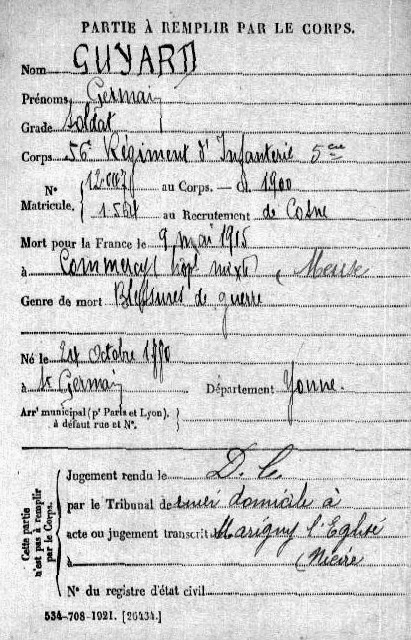 PARTIE À REMPLIR PAR LE CORPS.
Nom GUYARD
Prénoms Germain
Grade soldat
Corps 56e Régiment d'Infanterie 5eme
N° 12007 au Corps. — Cl. 1900
Matricule. 1564 au Recrutement de Cosne
Mort pour la France le 9 mai 1915
à Commercy (hopl mixte) (Meuse
Genre de mort Blessures de guerre
Né le octobre
à St Germain Département Yonne.
Arrt municipal (pr Paris et Lyon).
à défaut rue et N°.
Cette partie
n'est pas à remplir
par le Corps.
Jugement rendu le D. C.
par le Tribunal de domicile à
acte ou jugement transcrit Marigny l'Eglise
à (Nièvre
N° du registre d'état civil
534-708-1921. [26434.]